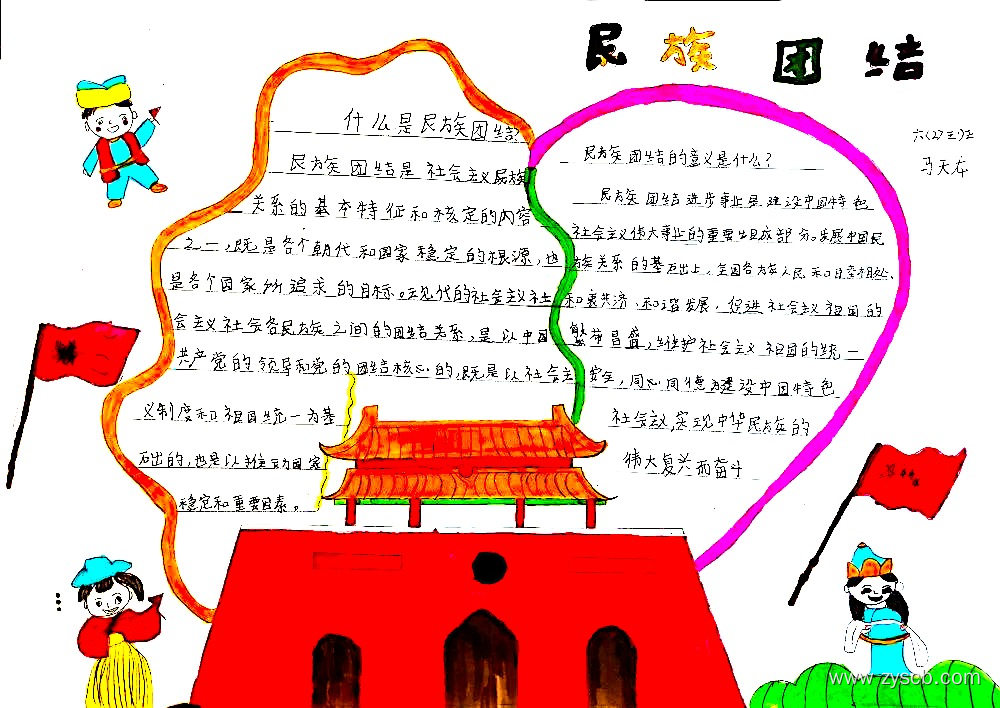 民族团结
六(2)班
马天
什么是民族团结
民族团结是社会主义民族
关系的基本特征和核定的内容
之一,既是各个朝代和国家稳定的根源,也
是各个国家所追求的目标。现代的社会主义社
会主义社会各民族之间的团结关系,是以中国
共产党的领导和党的团结核心的,既是以社会主
义制度和祖国统一为基
石出的,也是以推动国家
稳定和重要因素。
民族团结的意义是什么?
民族团结进步事业是建设中国特色
社会主义伟大事业的重要组成部分。发展中国民
族关系的基石出上,全国各方族人民和目幸相处、
和衷共济、和谐发展,促进社会主义祖国的
繁荣昌盛,维护社会主义祖国的统一
安全,同心同德为建设中国特色
社会主义,实现中华民族的
伟大复兴而奋斗
www.zyscb.com